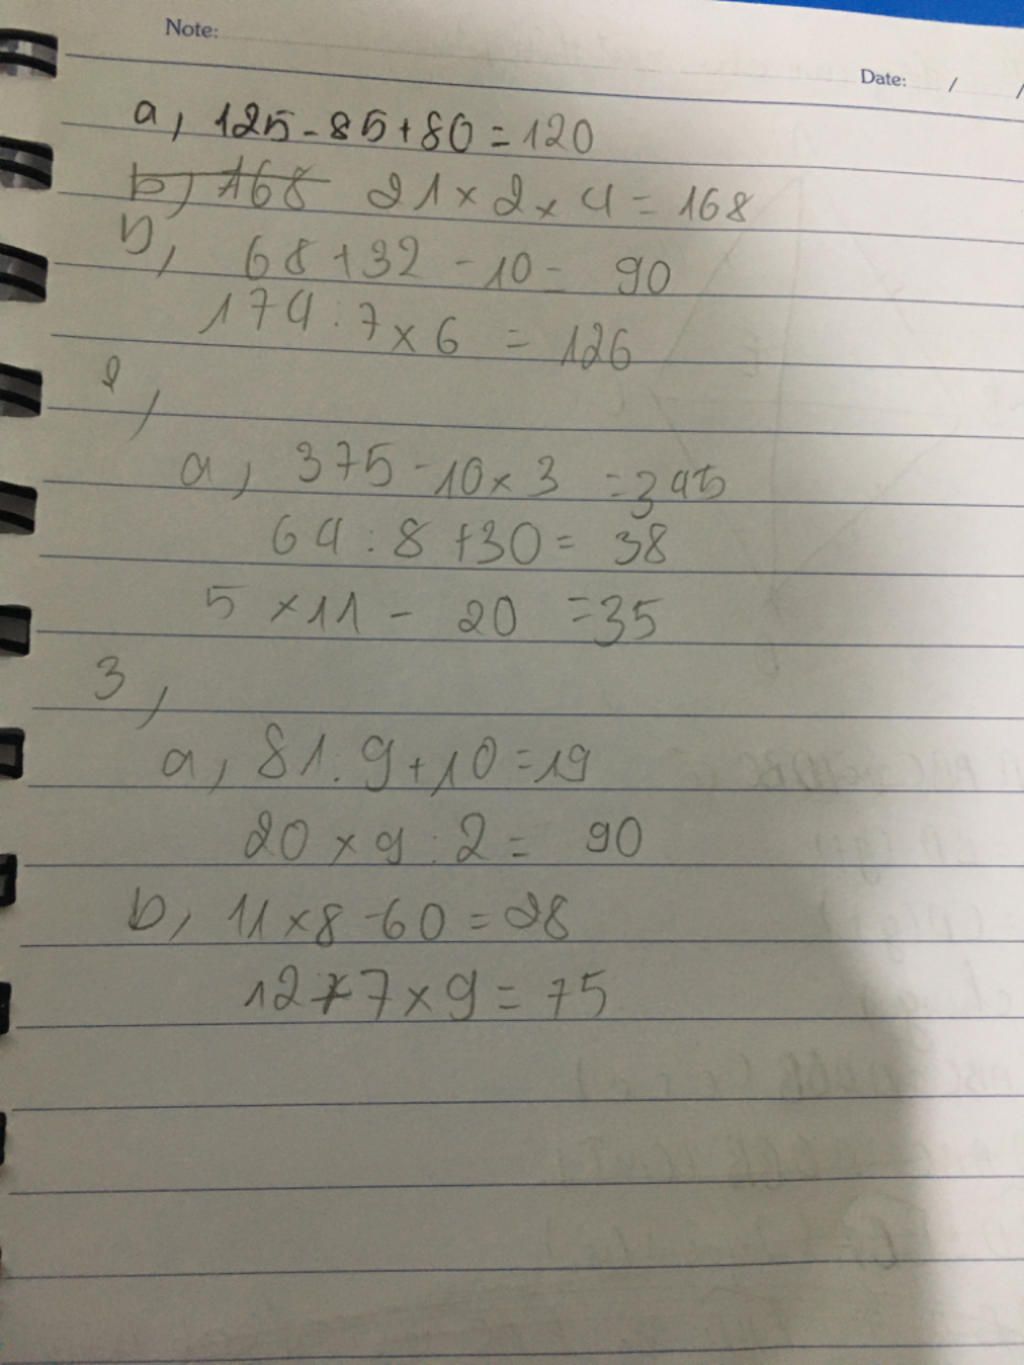 Note:
Date: / /
a, 125 - 85 + 80 = 120
b, 168 21 × 2 × 4 = 168
b, 68 + 32 - 10 = 90
174 : 7 × 6 = 126
2,
a, 375 - 10 × 3 = 345
64 : 8 + 30 = 38
5 × 11 - 20 = 35
3,
a, 81 : 9 + 10 = 19
20 × 9 : 2 = 90
b, 11 × 8 - 60 = 28
12 + 7 × 9 = 75